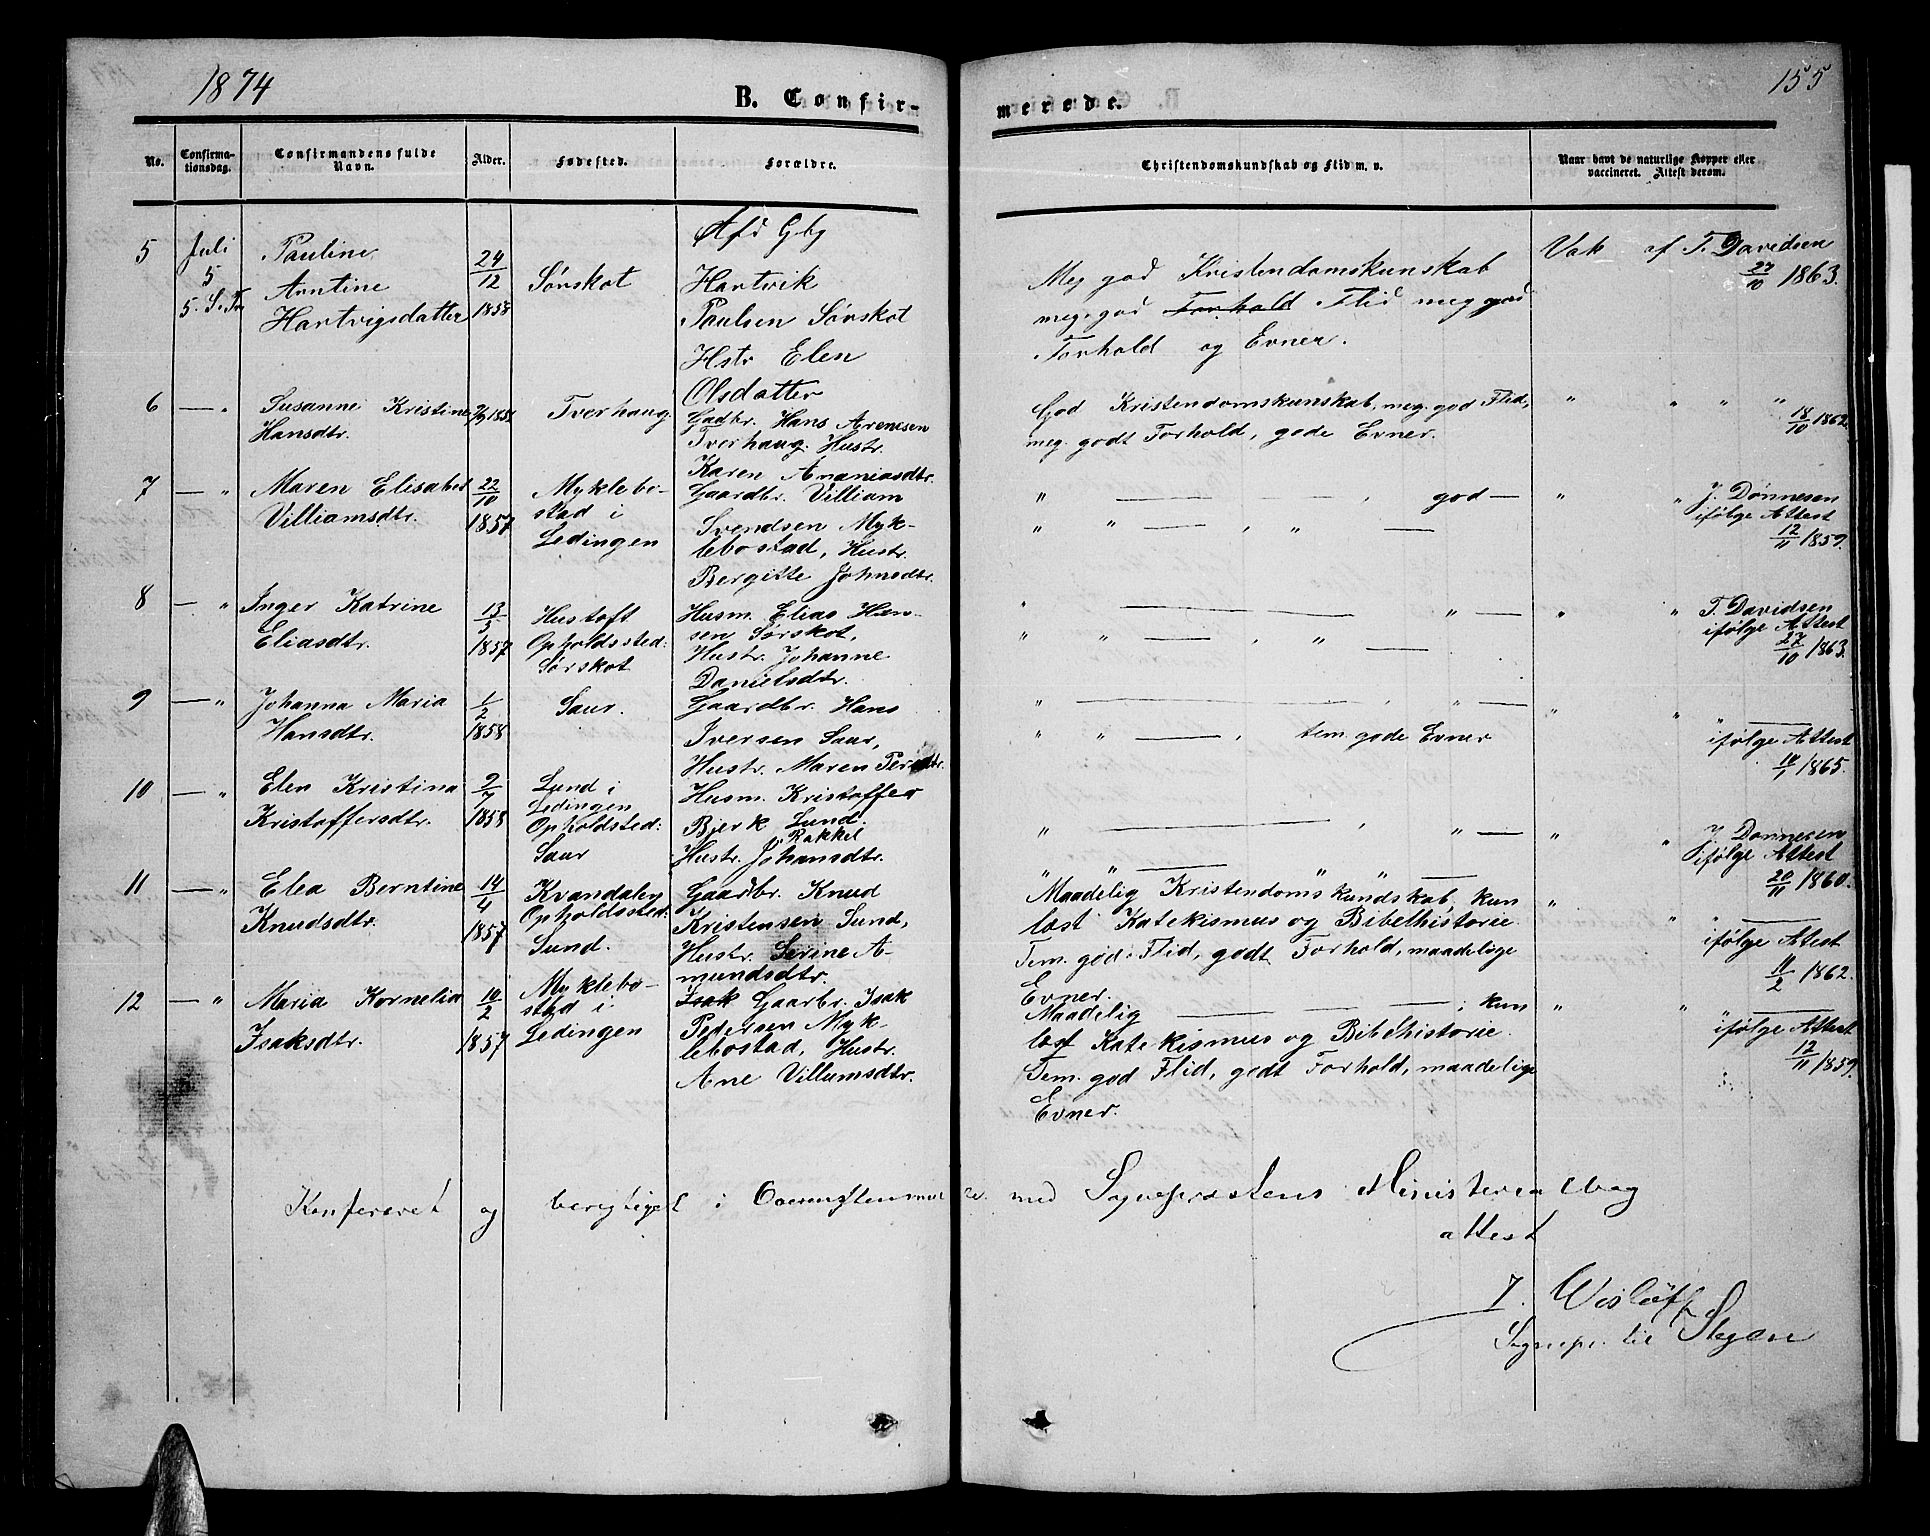 1874
155
B. Confir-
merede.
No.
Confirma-
tionsdag.
Confirmandens fulde
Navn.
Alder.
Fødested.
Forældre.
Christendomskundskab og Flid m. v.
Naar havt de naturlige Kopper eller
vaccineret. Attest derom.
5
Juli
5
5. S. Tr.
Pauline
Arntine
Hartvigsdatter
24/12
1858
Sørskot
Afd Gbg
Hartvik
Paulsen Sørskot
Hstr Elen
Olsdatter
Meg god Kristendomskunskab
meg. god Forhold Flid meg god
Forhold og Evner.
Vak af T. Davidsen
27/10 1863.
6
— "
Susanne Kristine
Hansdtr.
Tverhaug.
Gadbr. Hans Arentsen
Tverhaug. Hustr.
Karen Ananiasdtr.
God Kristendomskunskab, meg. god Flid,
meg. godt Forhold, gode Evner.
" " " "
18/10 1862.
7
— "
Maren Elisabet
Villiamsdtr.
22/10
1857
Myklebo-
stad i
Ledingen
Gaardbr. Villiam
Svendsen Myk-
lebostad, Hustr.
Bergitte Johnsdtr.
" — — , god —
" " — , " —
" " J. Dønnesen
ifølge Attest
12/11 1859.
8
— "
Inger Katrine
Eliasdtr.
13/3
1857
Hustoft
Opholdssted:
Sørskot
Husm. Elias Han-
sen Sørskot,
Hustr. Johanne
Danielsdtr.
" — — " —
" " — , " —
" " T. Davidsen
ifølge Attest
27/10 1863.
9
— "
Johanna Maria
Hansdtr.
1/2
1858
Saur.
Gaardbr. Hans
Iversen Saur,
Hustr. Maren Persdtr.
" — — , " —
" " — , tem. gode Evner
" " " —
ifølge Attest
1865.
10
— "
Elen Kristina
Kristoffersdtr.
2/7
1858
Lund i
Ledingen
Opholdsted:
Saur
Husm. Kristoffer
Bjerk Lund.
Rakkel
Hustr. Johansdtr.
" — — , " —
" — " " —
" " J. Dønnesen
ifølge Attest
20/11 1860.
11
— "
Elea Berntine
Knudsdtr.
14/4
1857
Kvandalen
Opholdssted:
Sund.
Gaardbr. Knud
Kristensen Sund,
Hustr. Serine A-
mundsdtr.
Maadelig Kristendomskundskab, kun
læst Katekismus og Bibelhistorie.
Tem. god Flid, godt Forhold, maadelige
Evner.
" " " —
ifølge Attest
11/2 1862.
12
— "
Maria Kornelia
Isaksdtr.
10/2
1857
Myklebo-
stad i
Ledingen
Isak Gaarbr. Isak
Pedersen Myk-
lebostad, Hustr.
Ane Villumsdtr.
Maadelig — — ; kun
læst Katekismus og Bibelhistorie.
Tem. god Flid, godt Forhold, maadelige
Evner.
" " " —
ifølge Attest
12/11 1859.
Konfereret og berigtiget i med Sognepræstens Ministerialbog
attest
J. Wisløff
Sognepr. til Stegen